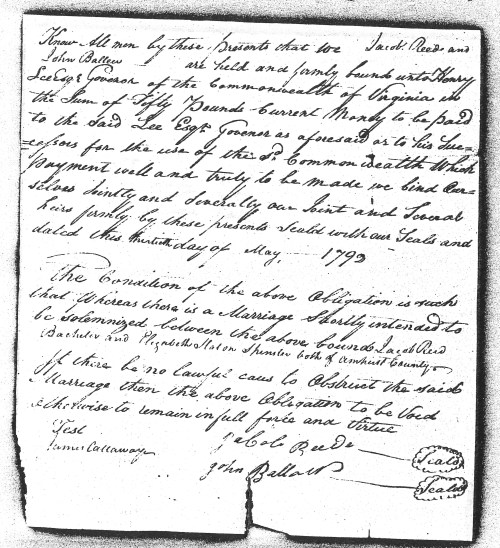 Know All men by these Presents that we Jacob Reed and
John Ballew are held and firmly bound unto Henry
Lee Esqr Govenor of the Commonwealth of Virginia in
the Sum of Fifty Pounds Current Money to be paid
to the Said Lee Esqr Govenor as aforesaid or to his Suc=
=cessors for the use of the Sd. Commonwealth Which
payment well and truly to be made we bind Our=
selves Jointly and Severally our Joint and Several
heirs firmly by these presents Seald with our Seals and
dated this thirtieth day of May, 1793
The Condition of the above Obligation is such
that Whereas there is a Marriage Shortly intended to
be Solemnized between the above bound Jacob Reed
Bachelor and Elizabeth Slaton Spinster both of Amherst County
If there be no lawful caus to Obstruct the said
Marriage then the above Obligation to be Void
otherwise to remain in full force and Virtue
Test
James Callaway
JaCob Reede Seald
John Ballow Seald